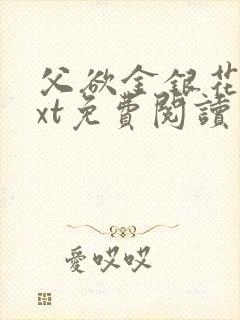 父欲金银花
xt免費閱讀
愛哎哎